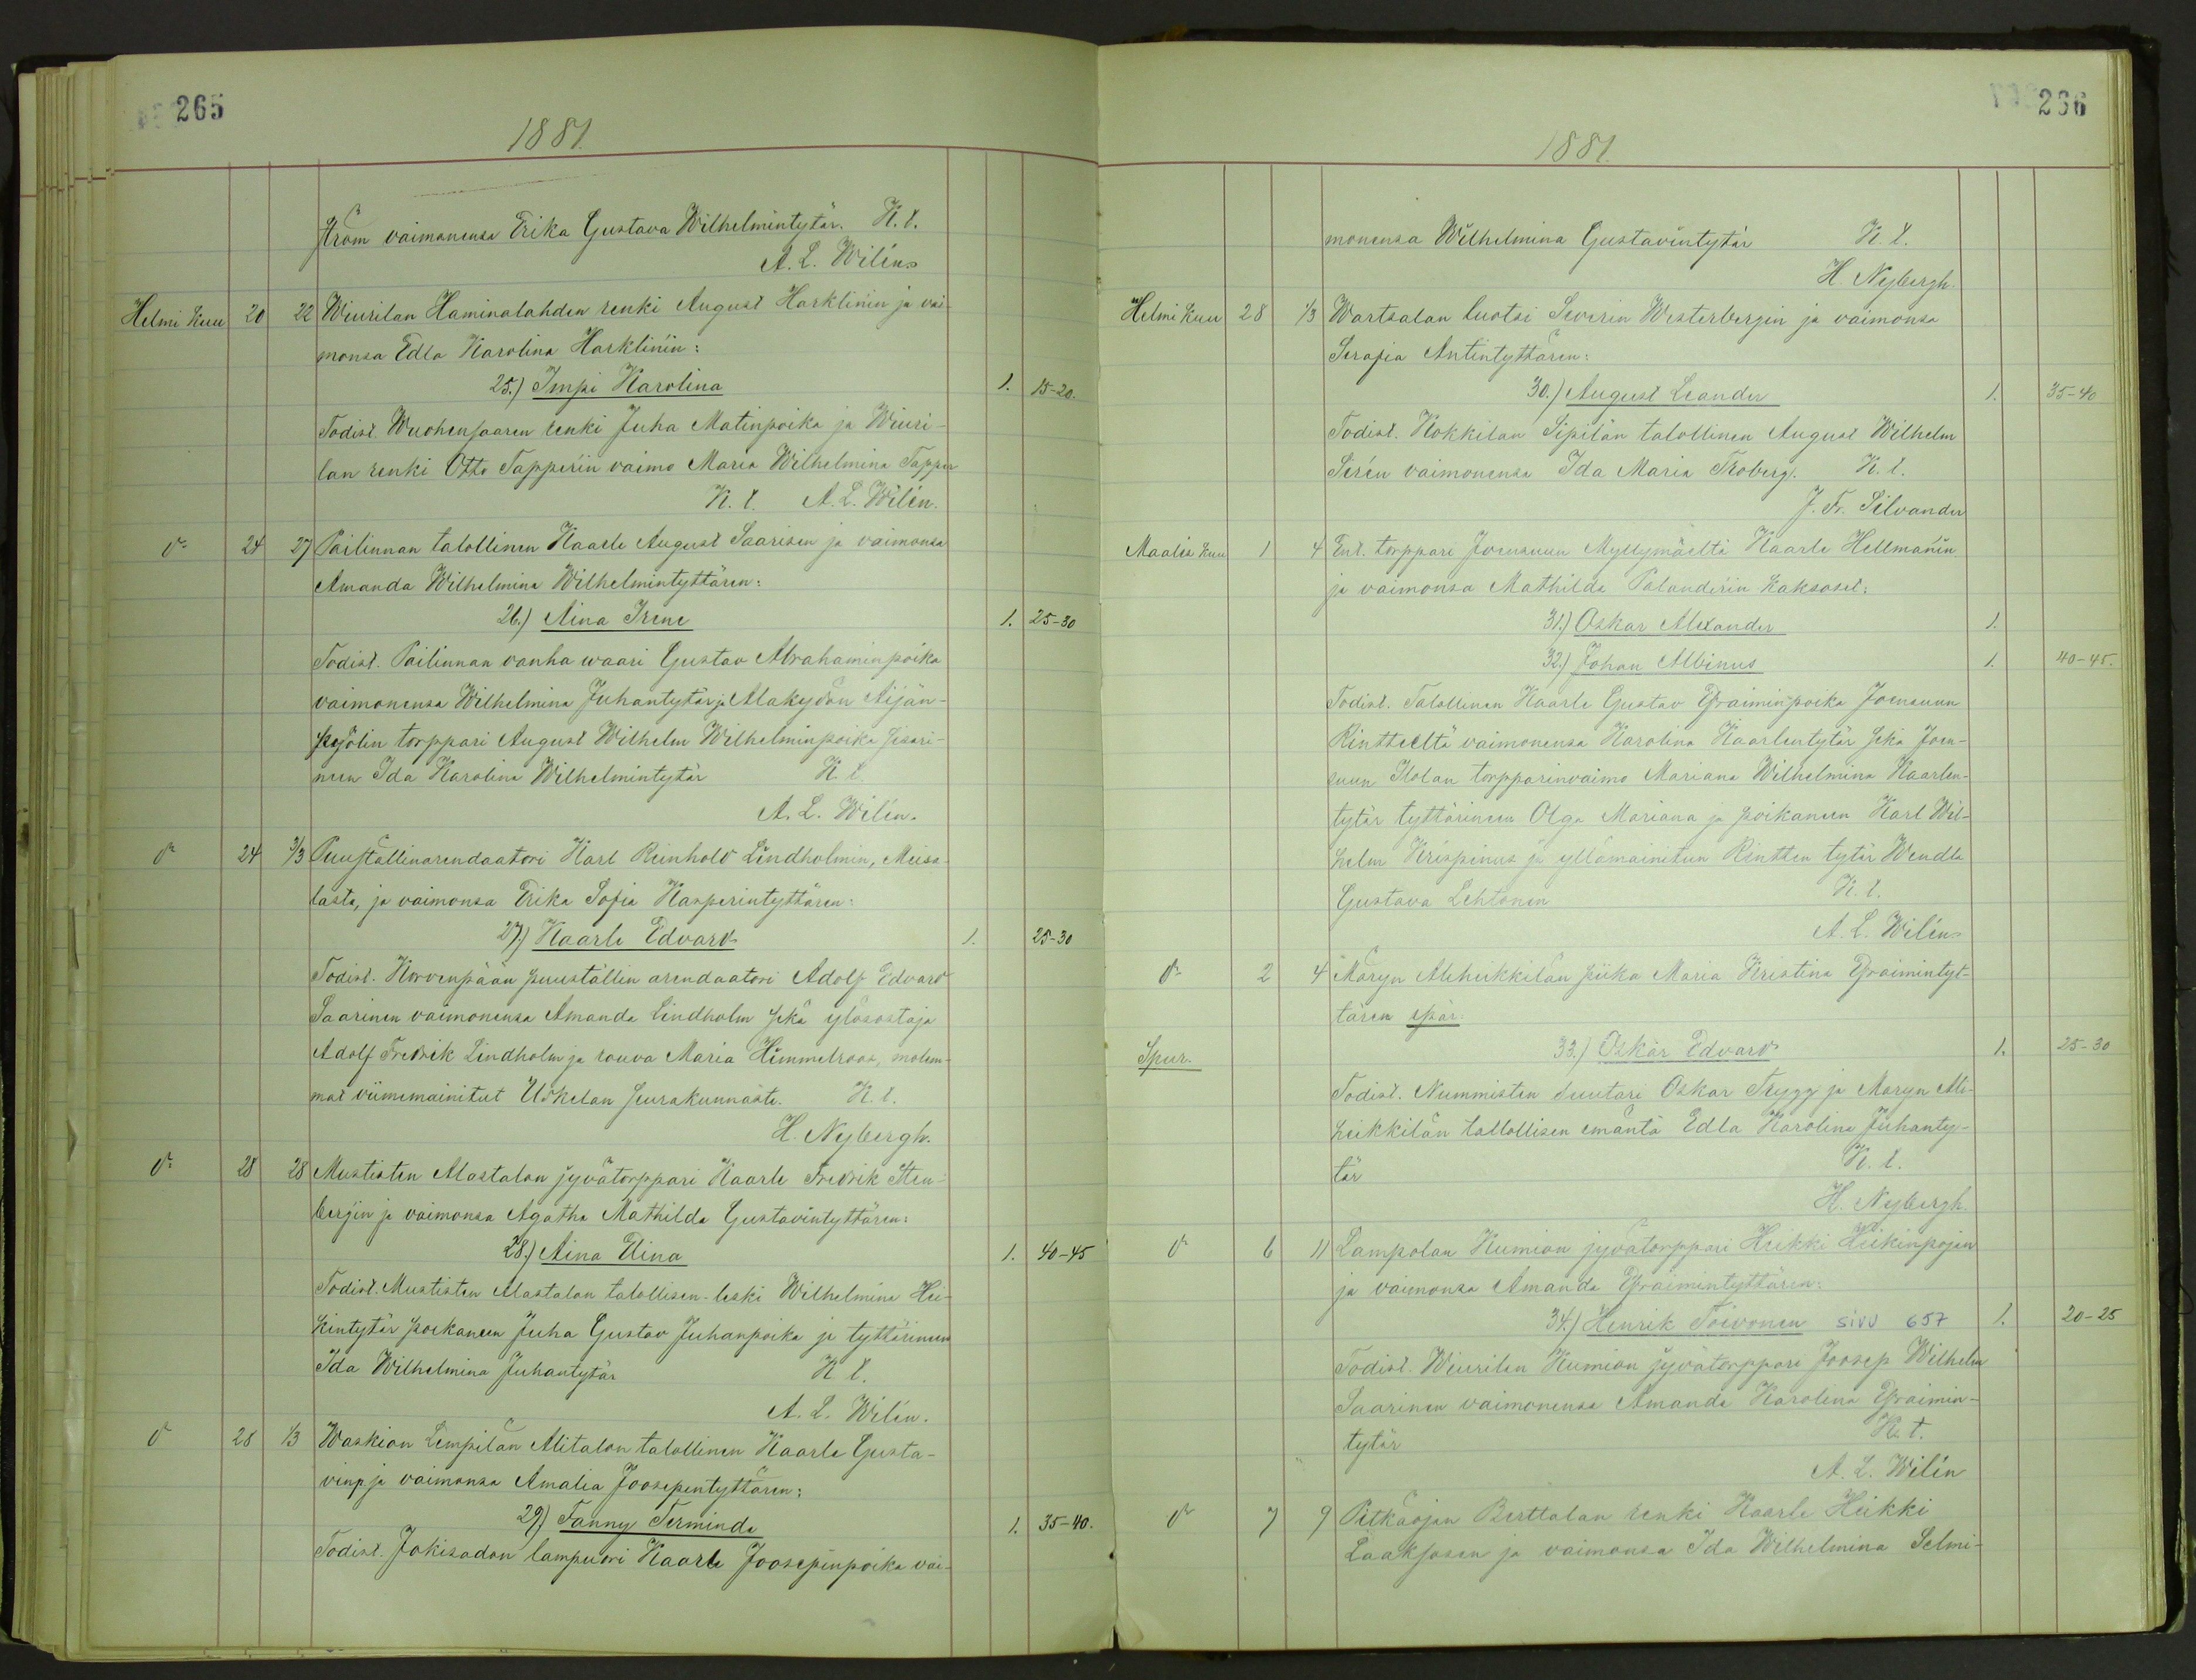 265
1881.
ström vaimonensa Erika Gustava Wilhelmintytär. K. l.
A. L. Wilén
Helmi kuu 20 22 Wiurilan Haminalahden renki August Harklinin ja vai-
monsa Edla Karolina Harklinin:
25.) Impi Karolina 1. 15-20.
Todist. Wuohensaaren renki Juha Matinpoika ja Wiuri-
lan renki Otto Tapperin vaimo Maria Wilhelmina Tapper
K. l. A. L. Wilén.
24 27 Pailinnan talollinen Kaarle August Saarisen ja vaimonsa
Amanda Wilhelmina Wilhelmintyttären:
26.) Aina Irene 1. 25-30
Todist. Pailinnan vanha waari Gustav Abrahaminpoika
vaimonensa Wilhelmina Juhantytär ja Alakydön Äijän-
torppari August Wilhelm Wilhelminpoika sisari-
neen Ida Karolina Wilhelmintytär K. l.
A. L. Wilén.
24 3/3 Puustallinarendaatori Karl Reinhold Lindholmin, Meiss-
lasta, ja vaimonsa Erika Sofia Kasperintyttären:
27.) Kaarle Edvard 1. 25-30
Todist. Korvenpään puustallin arendaatori Adolf Edvard
Saarinen vaimonensa Amanda Lindholm sekä ylösostaja
Adolf Fredrik Lindholm ja rouva Maria Himmelroos, molem-
mat viimemainitut Uskelan seurakunnasta. K. l.
H. Nybergh.
28 28 Mustisten Alastalon jyvätorppari Kaarle Fredrik Sten-
bergin ja vaimonsa Agatha Mathilda Gustavintyttären:
28.) Aina Elina 1. 40-45
Todist. Mustisten Alastalon talollisen-leski Wilhelmina Hei-
kintytär poikaneen Juha Gustav Juhanpoika ja tyttärineen
Ida Wilhelmina Juhantytär K. l.
A. L. Wilén.
28 1/3 Waskion Lempilän Alitalon talollinen Kaarle Gusta-
vinp. ja vaimonsa Amalia Joosepintyttären:
29.) Fanny Serminda 1. 35-40.
Todist. Jokisadon lampuori Kaarle Joosepinpoika vai-
266
1881.
monensa Wilhelmina Gustavintytär K. l.
H. Nybergh.
Helmi kuu 28 1/3 Wartsalan luotsi Severin Westerbergin ja vaimonsa
Serafia Antintyttären:
30.) August Leander 1. 35-40
Todist. Kokkilan Sipilän talollinen August Wilhelm
Sirén vaimonensa Ida Maria Troberg. K. l.
J. Fr. Silvander
Maalis kuu 1 4 Ent. torppari Joensuun Myllymäeltä Kaarle Hellmanin
ja vaimonsa Mathilda Palanderin kaksoset:
31.) Oskar Alexander 1.
32.) Johan Albinus 1. 40-45.
Todist. Talollinen Kaarle Gustav Efraiminpoika Joensuun
Rintteeltä vaimonensa Karolina Kaarlentytär sekä Joen-
suun Ilolan torpparinvaimo Mariana Wilhelmina Kaarlen-
tytär tyttärineen Olga Mariana ja poikaneen Karl Wil-
helm Krispinus ja yllämainitun Rintten tytär Wendla
Gustava Lehtonen K. l.
A. L. Wilén
2 4 Märyn Aliheikkilän piika Maria Kristina Efraimintyt-
tären epär:
Spur. 33.) Oskar Edvard 1. 25-30
Todist. Nummisten suutari Oskar Trygg ja Maryn Ali-
heikkilän tallollisen emäntä Edla Karolina Juhanty-
tär K. l.
H. Nybergh.
6 11 Lampolan Kumion jyvätorppari Heikki Heikinpojan
ja vaimonsa Amanda Efraimintyttären:
34.) Henrik Toivonen sivu 657 1. 20-25
Todist. Wiurilan Kumion jyvätorppari Joosep Wilhelm
Saarinen vaimonensa Amanda Karolina Efraimin-
tytär K. t.
A. L. Wilén
7 9 Pitkäojan Perttalan renki Kaarle Heikki
Laaksosen ja vaimonsa Ida Wilhelmina Selmi-